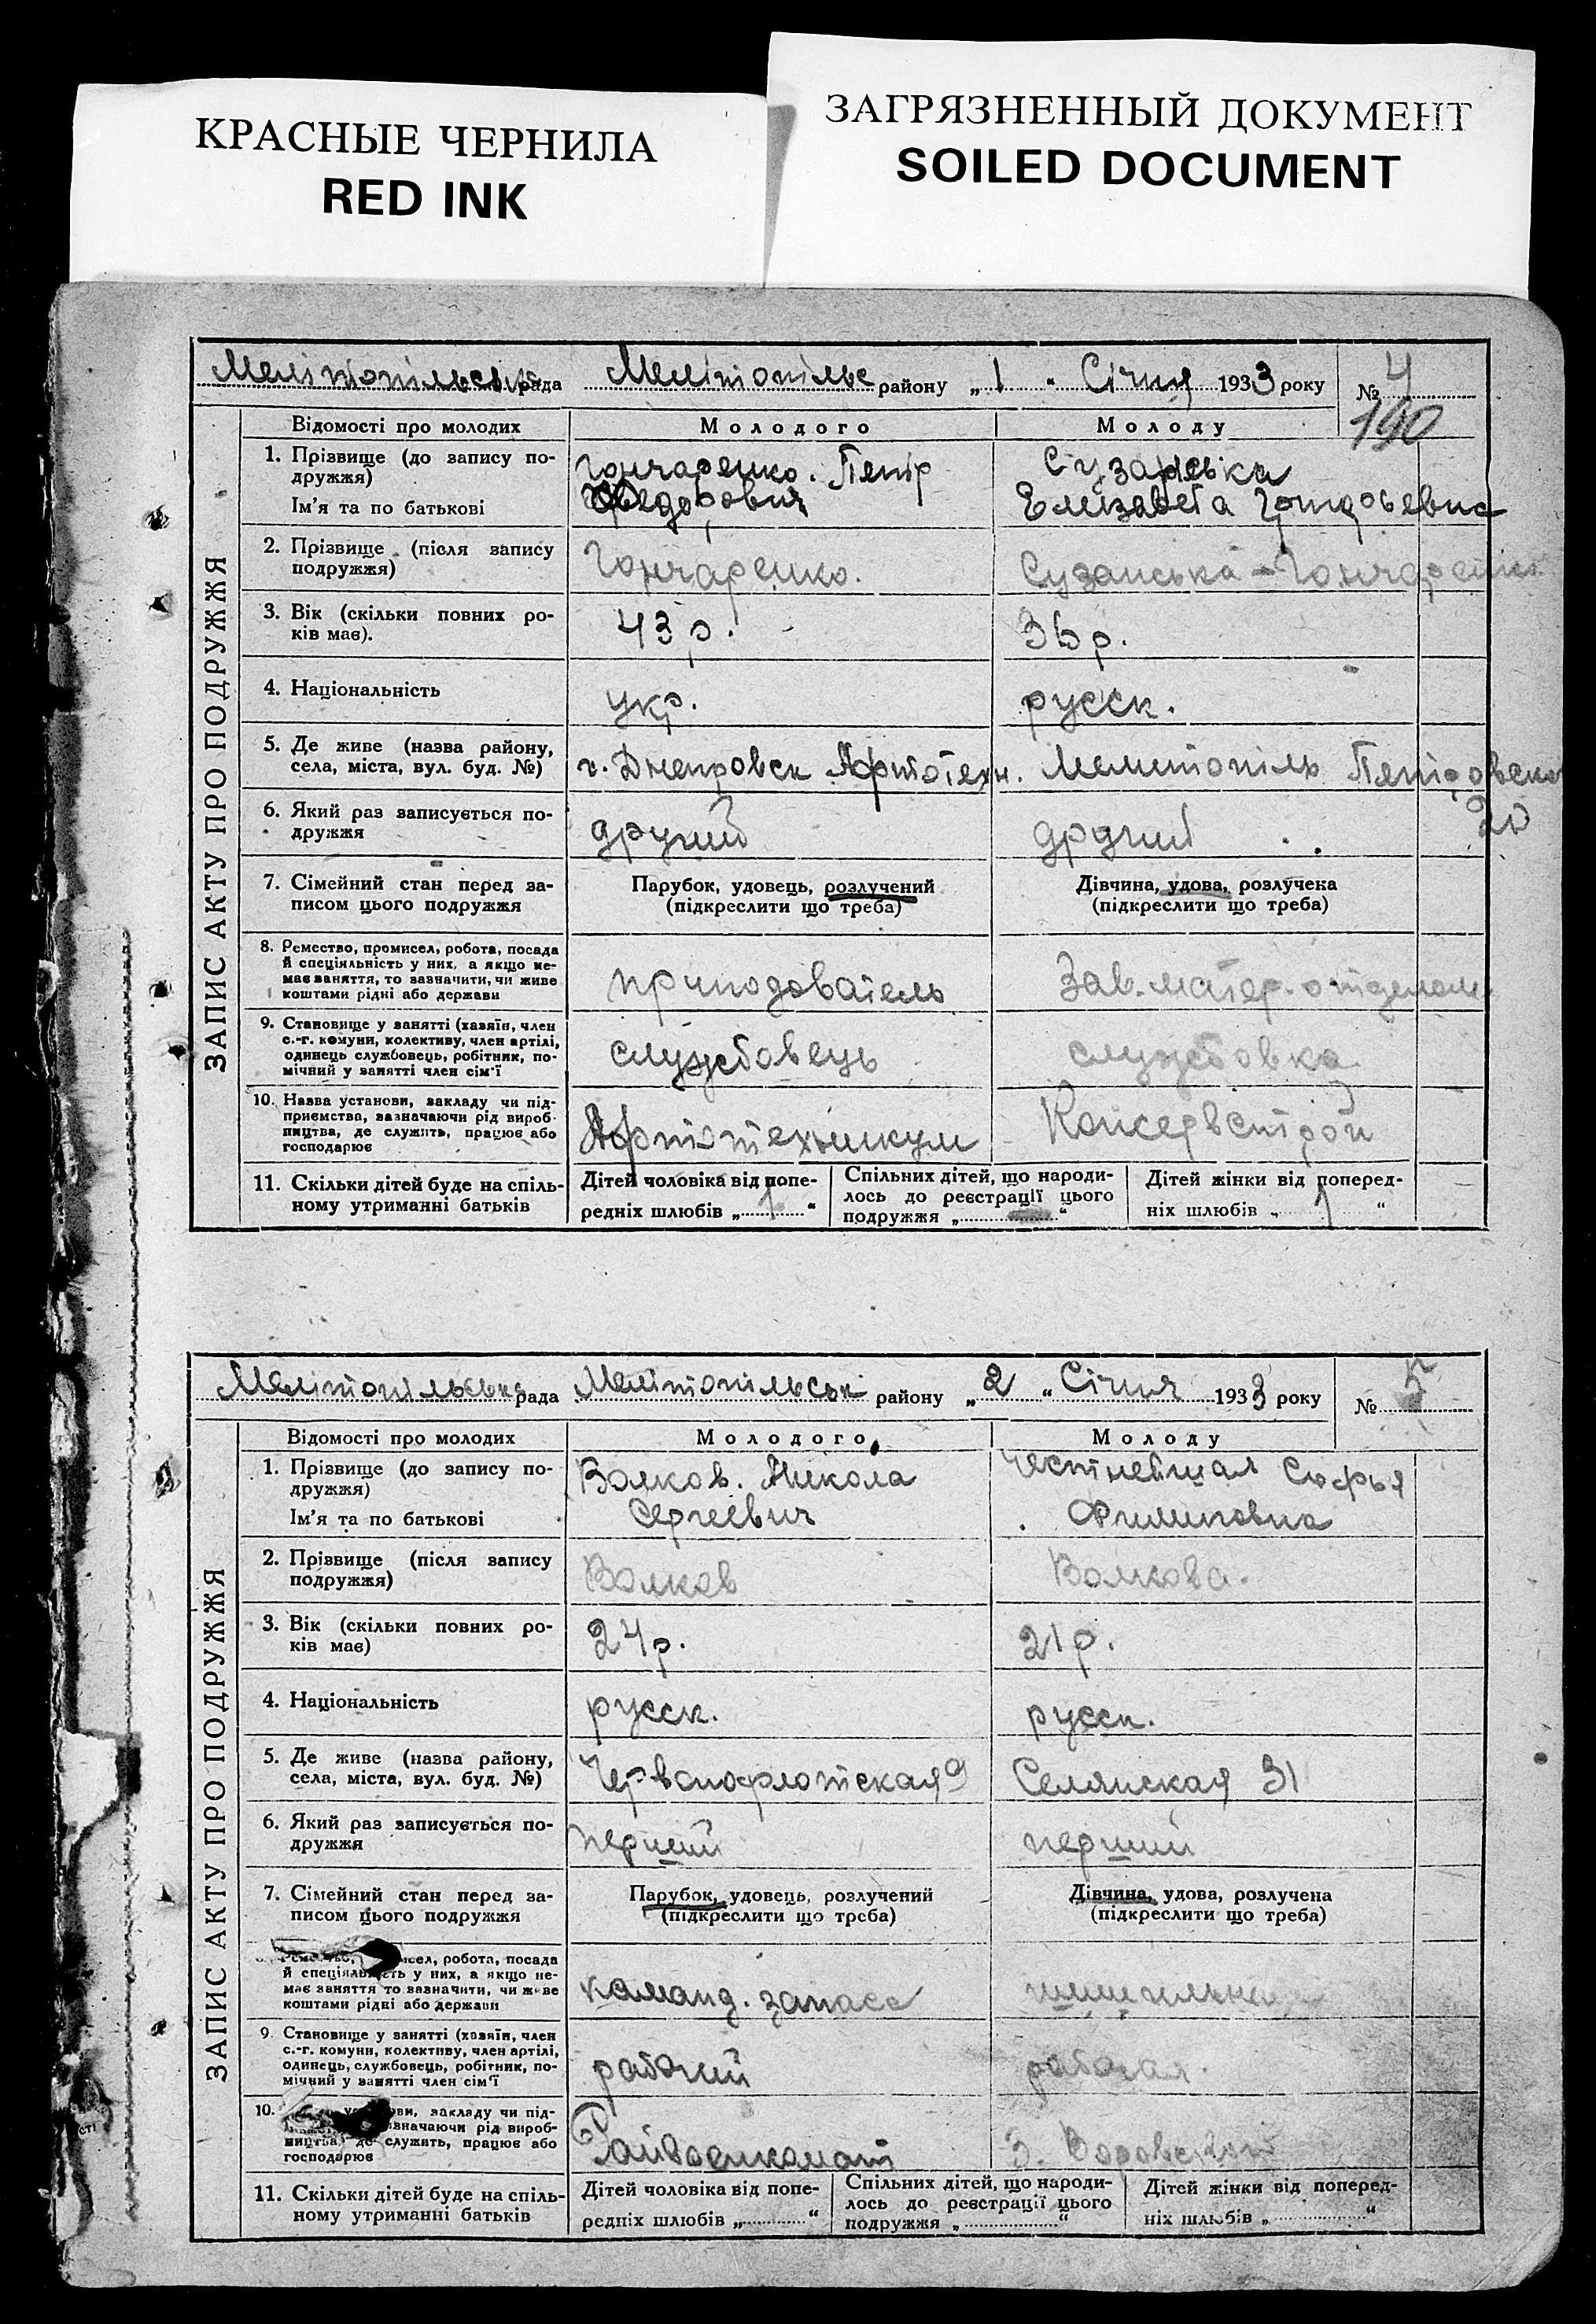 КРАСНЫЕ ЧЕРНИЛА
RED INK
ЗАГРЯЗНЕННЫЙ ДОКУМЕНТ
SOILED DOCUMENT
Мелітопільська рада Мелітопільс району „1“ Січня 1933 року № 4
190
ЗАПИС АКТУ ПРО ПОДРУЖЖЯ
Відомості про молодих Молодого Молоду
1. Прізвище (до запису по-
дружжя)
Ім'я та по батькові
Гончаренко. Петр
Федорович
Сузанська
Елизавета
2. Прізвище (після запису
подружжя)
Гончаренко.
Сузанська-Гончаренко
3. Вік (скільки повних ро-
ків має).
43 р.
36 р.
4. Національність
укр.
русск.
5. Де живе (назва району,
села, міста, вул. буд. №)
г. Днепровск Афтотехн.
Мелитопіль Петровська
20
6. Який раз записується по-
дружжя
другий
другий
7. Сімейний стан перед за-
писом цього подружжя
Парубок, удовець, розлучений
(підкреслити що треба)
Дівчина, удова, розлучена
(підкреслити що треба)
8. Ремество, промисел, робота, посада
й спеціяльність у них, а якщо не-
має заняття, то зазначити, чи живе
коштами рідні або держави
приподователь
Зав. матер. отделом
9. Становище у занятті (хазяїн, член
с.-г. комуни, колективу, член артілі,
одинець службовець, робітник, по-
мічний у занятті член сім'ї
службовець
службовка
10. Назва установи, закладу чи під-
приємства, зазначаючи рід вироб-
ництва, де служить, працює або
господарює
Афтотехникум
Консервстрой
11. Скільки дітей буде на спіль-
ному утриманні батьків
Дітей чоловіка від попе-
редніх шлюбів „ 1 “
Спільних дітей, що народи-
лось до реєстрації цього
подружжя „ - “
Дітей жінки від поперед-
ніх шлюбів „ 1 “
Мелітопільська рада Мелітопільськ району „2“ Січня 1933 року № 5
ЗАПИС АКТУ ПРО ПОДРУЖЖЯ
Відомості про молодих Молодого Молоду
1. Прізвище (до запису по-
дружжя)
Ім'я та по батькові
Волков. Микола
Сергеевич
Честнейшая Софья
Филиповна
2. Прізвище (після запису
подружжя)
Волков
Волкова.
3. Вік (скільки повних ро-
ків має)
24 р.
21 р.
4. Національність
русск.
русск.
5. Де живе (назва району,
села, міста, вул. буд. №)
Червонофлотская 9
Селянская 31
6. Який раз записується по-
дружжя
перший
перший
7. Сімейний стан перед за-
писом цього подружжя
Парубок, удовець, розлучений
(підкреслити що треба)
Дівчина, удова, розлучена
(підкреслити що треба)
робота, посада
й спеціяльність у них, а якщо не-
має заняття то зазначити, чи живе
коштами рідні або держави
команд. запаса
9. Становище у занятті (хазяїн, член
с.-г. комуни, колективу, член артілі,
одинець, службовець, робітник, по-
мічний у занятті член сім'ї
рабочий
рабочая.
10. закладу чи під-
зазначаючи рід вироб-
ництва, де служить, працює або
господарює
Райвоенкомат
З. Воровского
11. Скільки дітей буде на спіль-
ному утриманні батьків
Дітей чоловіка від попе-
редніх шлюбів „ “
Спільних дітей, що народи-
лось до реєстрації цього
подружжя „ “
Дітей жінки від поперед-
ніх шлюбів „ “